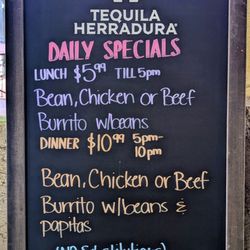 TEQUILA
HERRADURA®
DAILY SPECIALS
LUNCH $5.99 TILL 5pm
Bean, Chicken or Beef
Burrito w/beans
DINNER $10.99 5pm-
10pm
Bean, Chicken or Beef
Burrito w/beans &
papitas
(NO Substitutions)